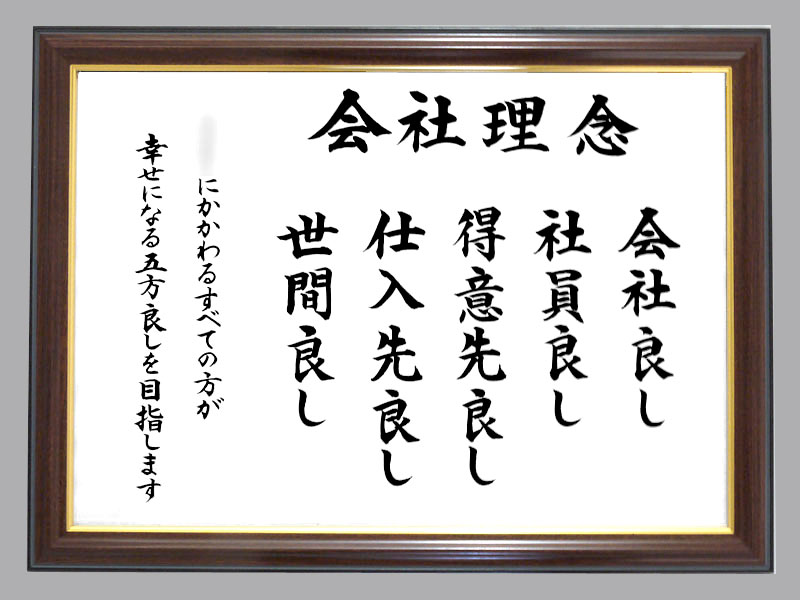 会社理念
会社良し
社員良し
得意先良し
仕入先良し
世間良し
にかかわるすべての方が
幸せになる五方良しを目指します